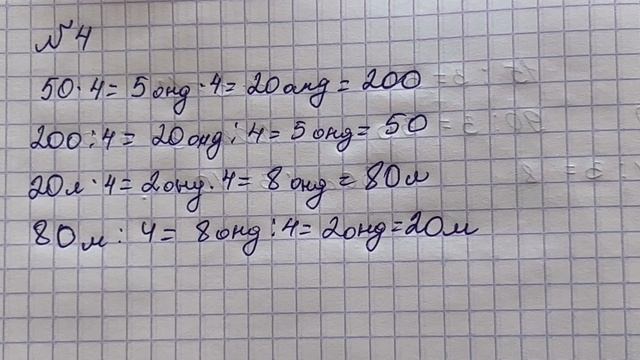 №4
50·4=5онд·4=20онд=200
200:4=20онд:4=5онд=50
20л·4=2онд·4=8онд=80л
80м:4=8онд:4=2онд=20м